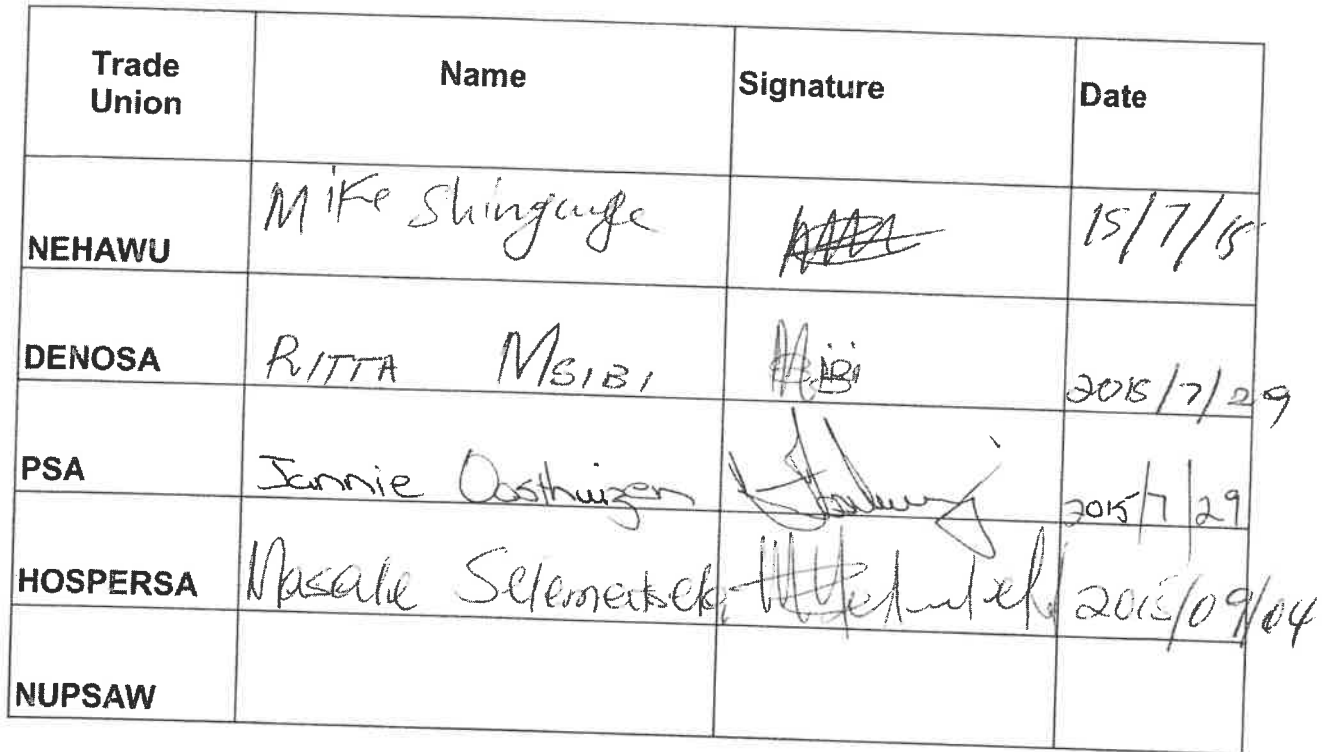 Trade Union Name Signature Date
NEHAWU Mike Shingange 15/7/15
DENOSA RITTA MSIBI Msibi 2015/7/29
PSA Jannie Oosthuizen 2015/7/29
HOSPERSA 2015/09/04
NUPSAW